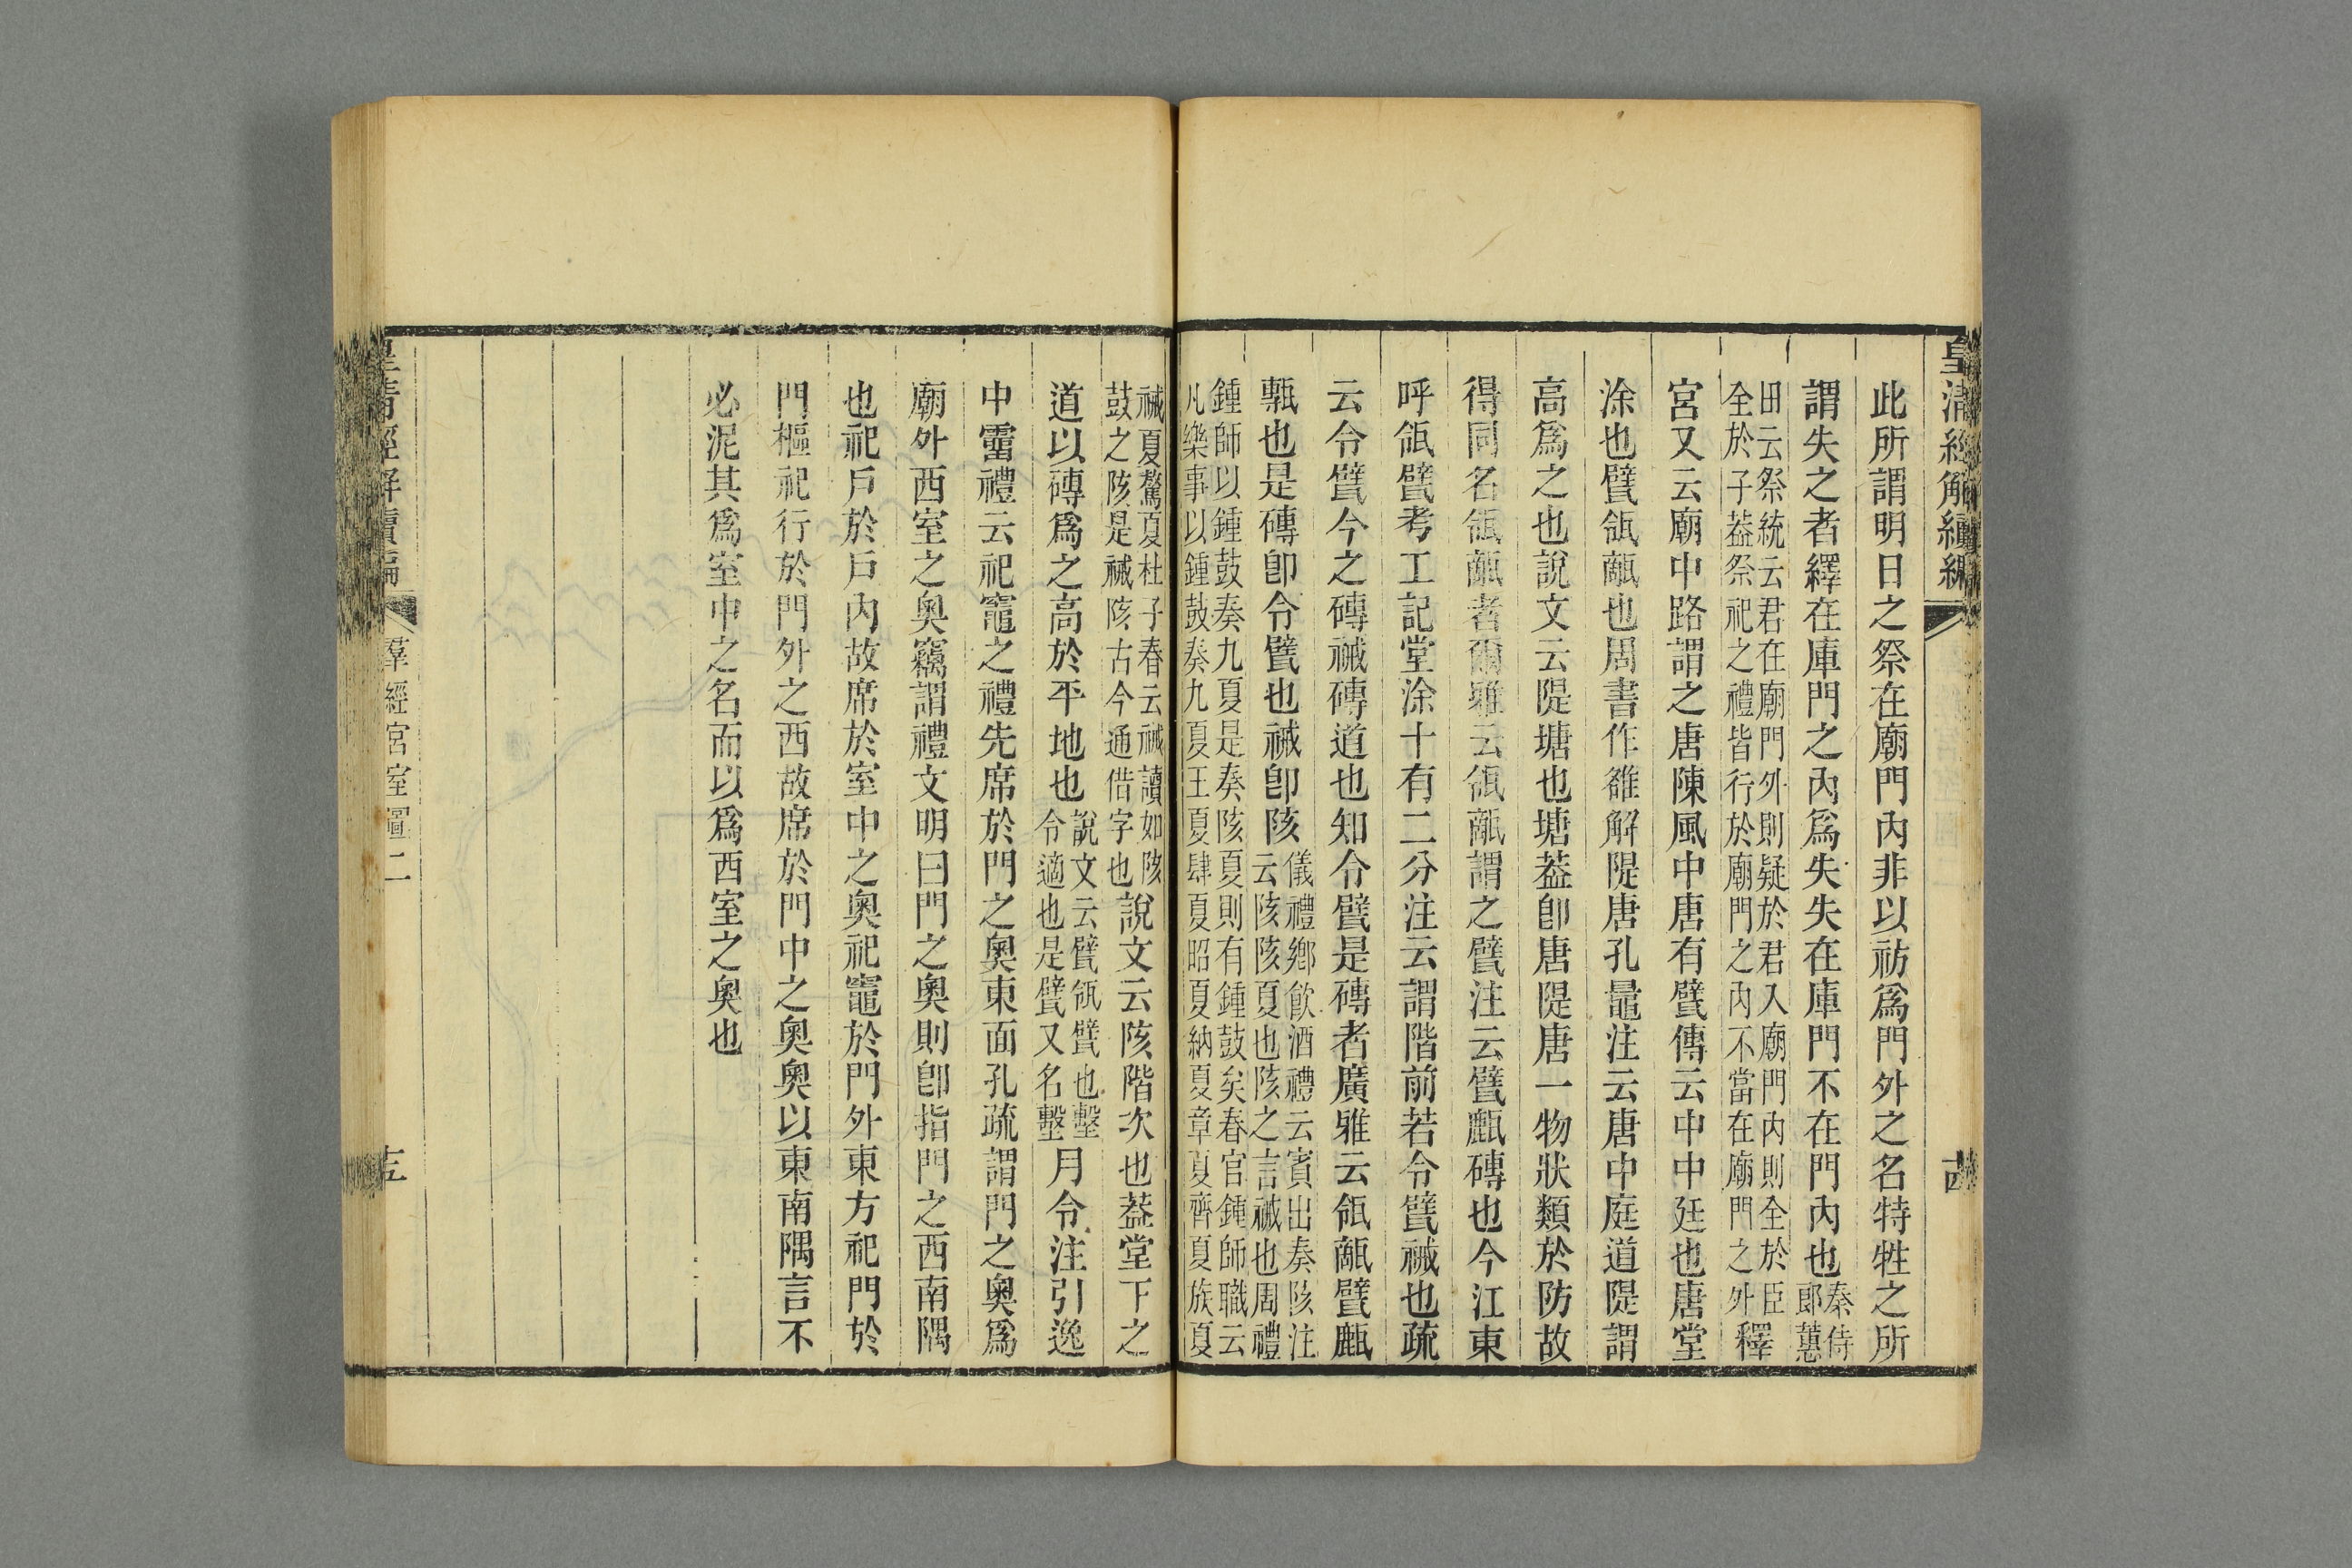 皇清經解續編
此所謂明日之祭在廟門內非以祊爲門外之名特牲之所
謂失之者繹在庫門之內爲失失在庫門不在門內也秦侍郎蕙
田云祭統云君在廟門外則疑於君入廟門內則全於臣
全於子葢祭祀之禮皆行於廟門之內不當在廟門之外釋
宮又云廟中路謂之唐陳風中唐有甓傳云中中廷也唐堂
涂也甓瓴甋也周書作雒解隄唐孔鼂注云唐中庭道隄謂
高爲之也說文云隄塘也塘葢卽唐隄唐一物狀類於防故
得同名瓴甋者爾雅云瓴甋謂之甓注云甓甎磚也今江東
呼瓴甓考工記堂涂十有二分注云謂階前若令甓祴也疏
云令甓今之磚祴磚道也知令甓是磚者廣雅云瓴甋甓甎
甎也是磚卽令甓也祴卽陔
儀禮鄉飮酒禮云賓出奏陔注
云陔陔夏也陔之言祴也周禮
鍾師以鍾鼓奏九夏是奏陔夏則有鍾鼓矣春官鍾師職云
凡樂事以鍾鼓奏九夏王夏肆夏昭夏納夏章夏齊夏族夏
祴夏驁夏杜子春云祴讀如陔
鼓之陔是祴陔古今通借字也
說文云陔階次也葢堂下之
道以磚爲之高於平地也
說文云甓瓴甓也墼
令適也是甓又名墼
月令注引逸
中霤禮云祀竈之禮先席於門之奧東面孔疏謂門之奧爲
廟外西室之奧竊謂禮文明曰門之奧則卽指門之西南隅
也祀戶於戶內故席於室中之奧祀竈於門外東方祀門於
門樞祀行於門外之西故席於門中之奧奧以東南隅言不
必泥其爲室中之名而以爲西室之奧也
皇清經解續編
羣經宮室圖二